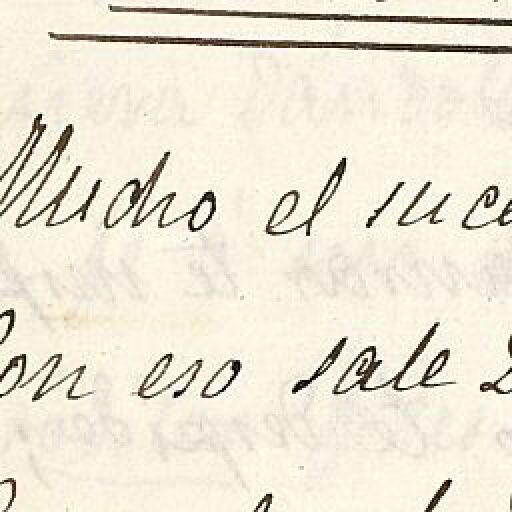 Mucho el suce
Con eso sale